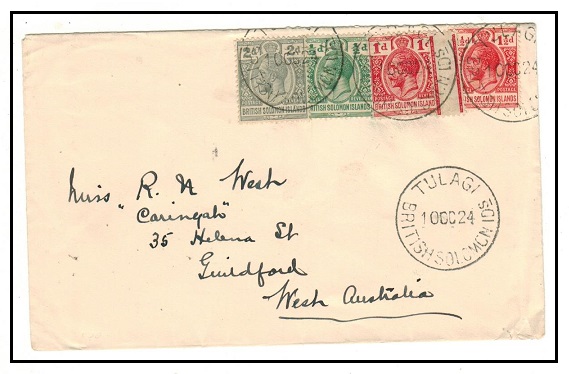 2d 2d ½d ½d 1d 1d 1½d
BRITISH SOLOMON ISLANDS BRITISH SOLOMON ISLANDS BRITISH SOLOMON ISLANDS BRITISH SOLOMON ISLANDS
Miss R. N West
"Caringah"
35 Helena St
Guildford
West Australia
TULAGI
10OC24
BRITISH SOLOMON IDS